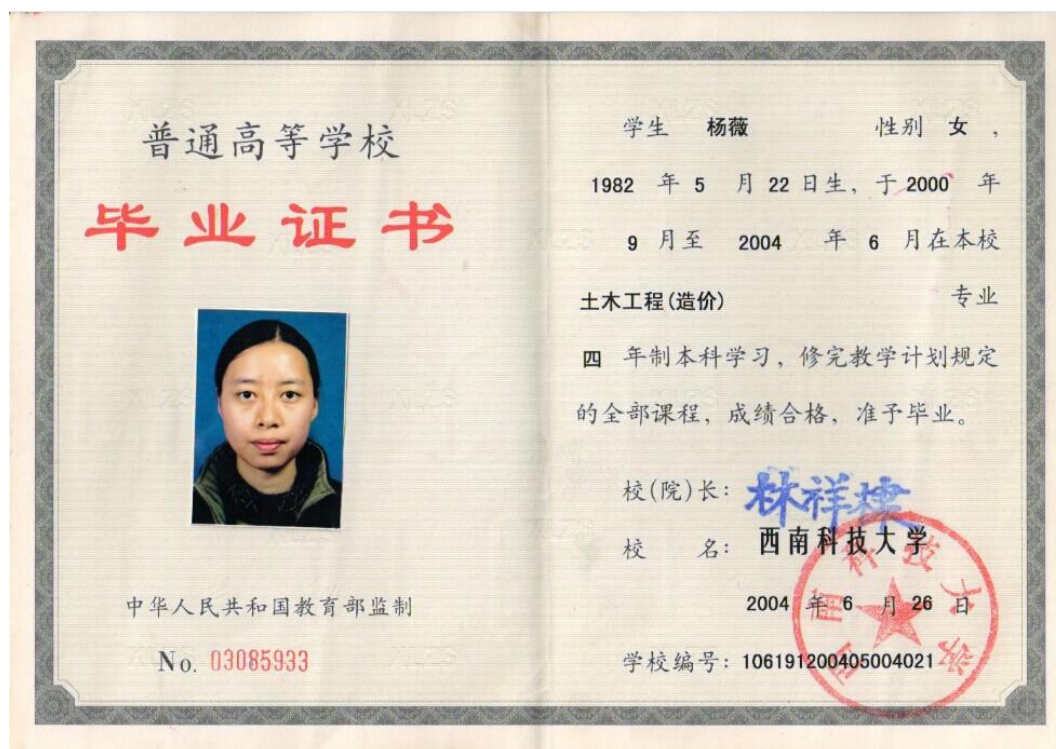 普通高等学校
毕业证书
中华人民共和国教育部监制
No. 03085933
学生 杨薇 性别 女，
1982 年 5 月 22 日生，于 2000 年
9 月至 2004 年 6 月在本校
土木工程(造价) 专业
四 年制本科学习，修完教学计划规定
的全部课程，成绩合格，准予毕业。
校(院)长：林祥棣
校 名：西南科技大学
2004 年 6 月 26 日
学校编号：106191200405004021
西南科技大学